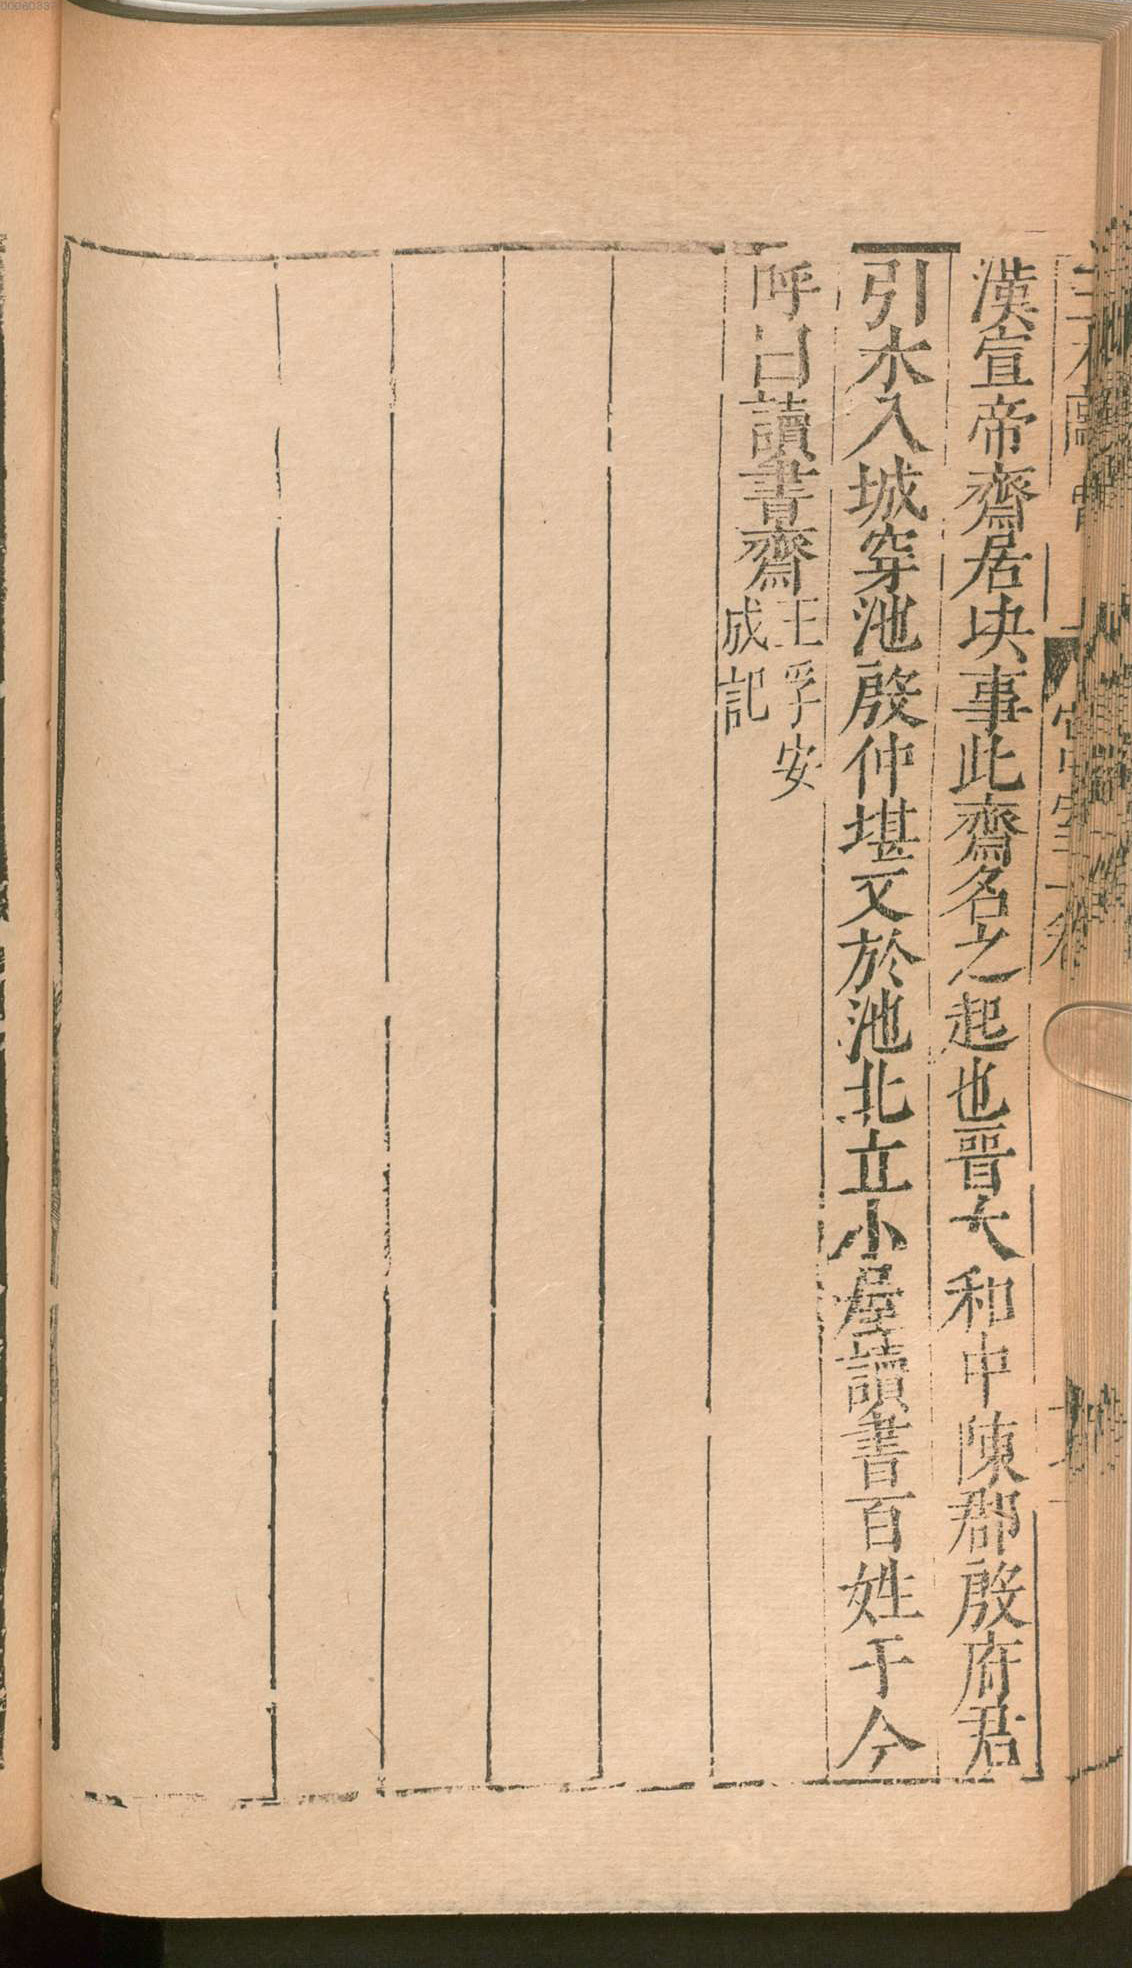 漢宣帝齋居块事此齋名之起也晉大和中陳郡殷府君
引水入城穿池殷仲堪又於池北立小屋讀書百姓于今
呼曰讀書齋王孚安
成記